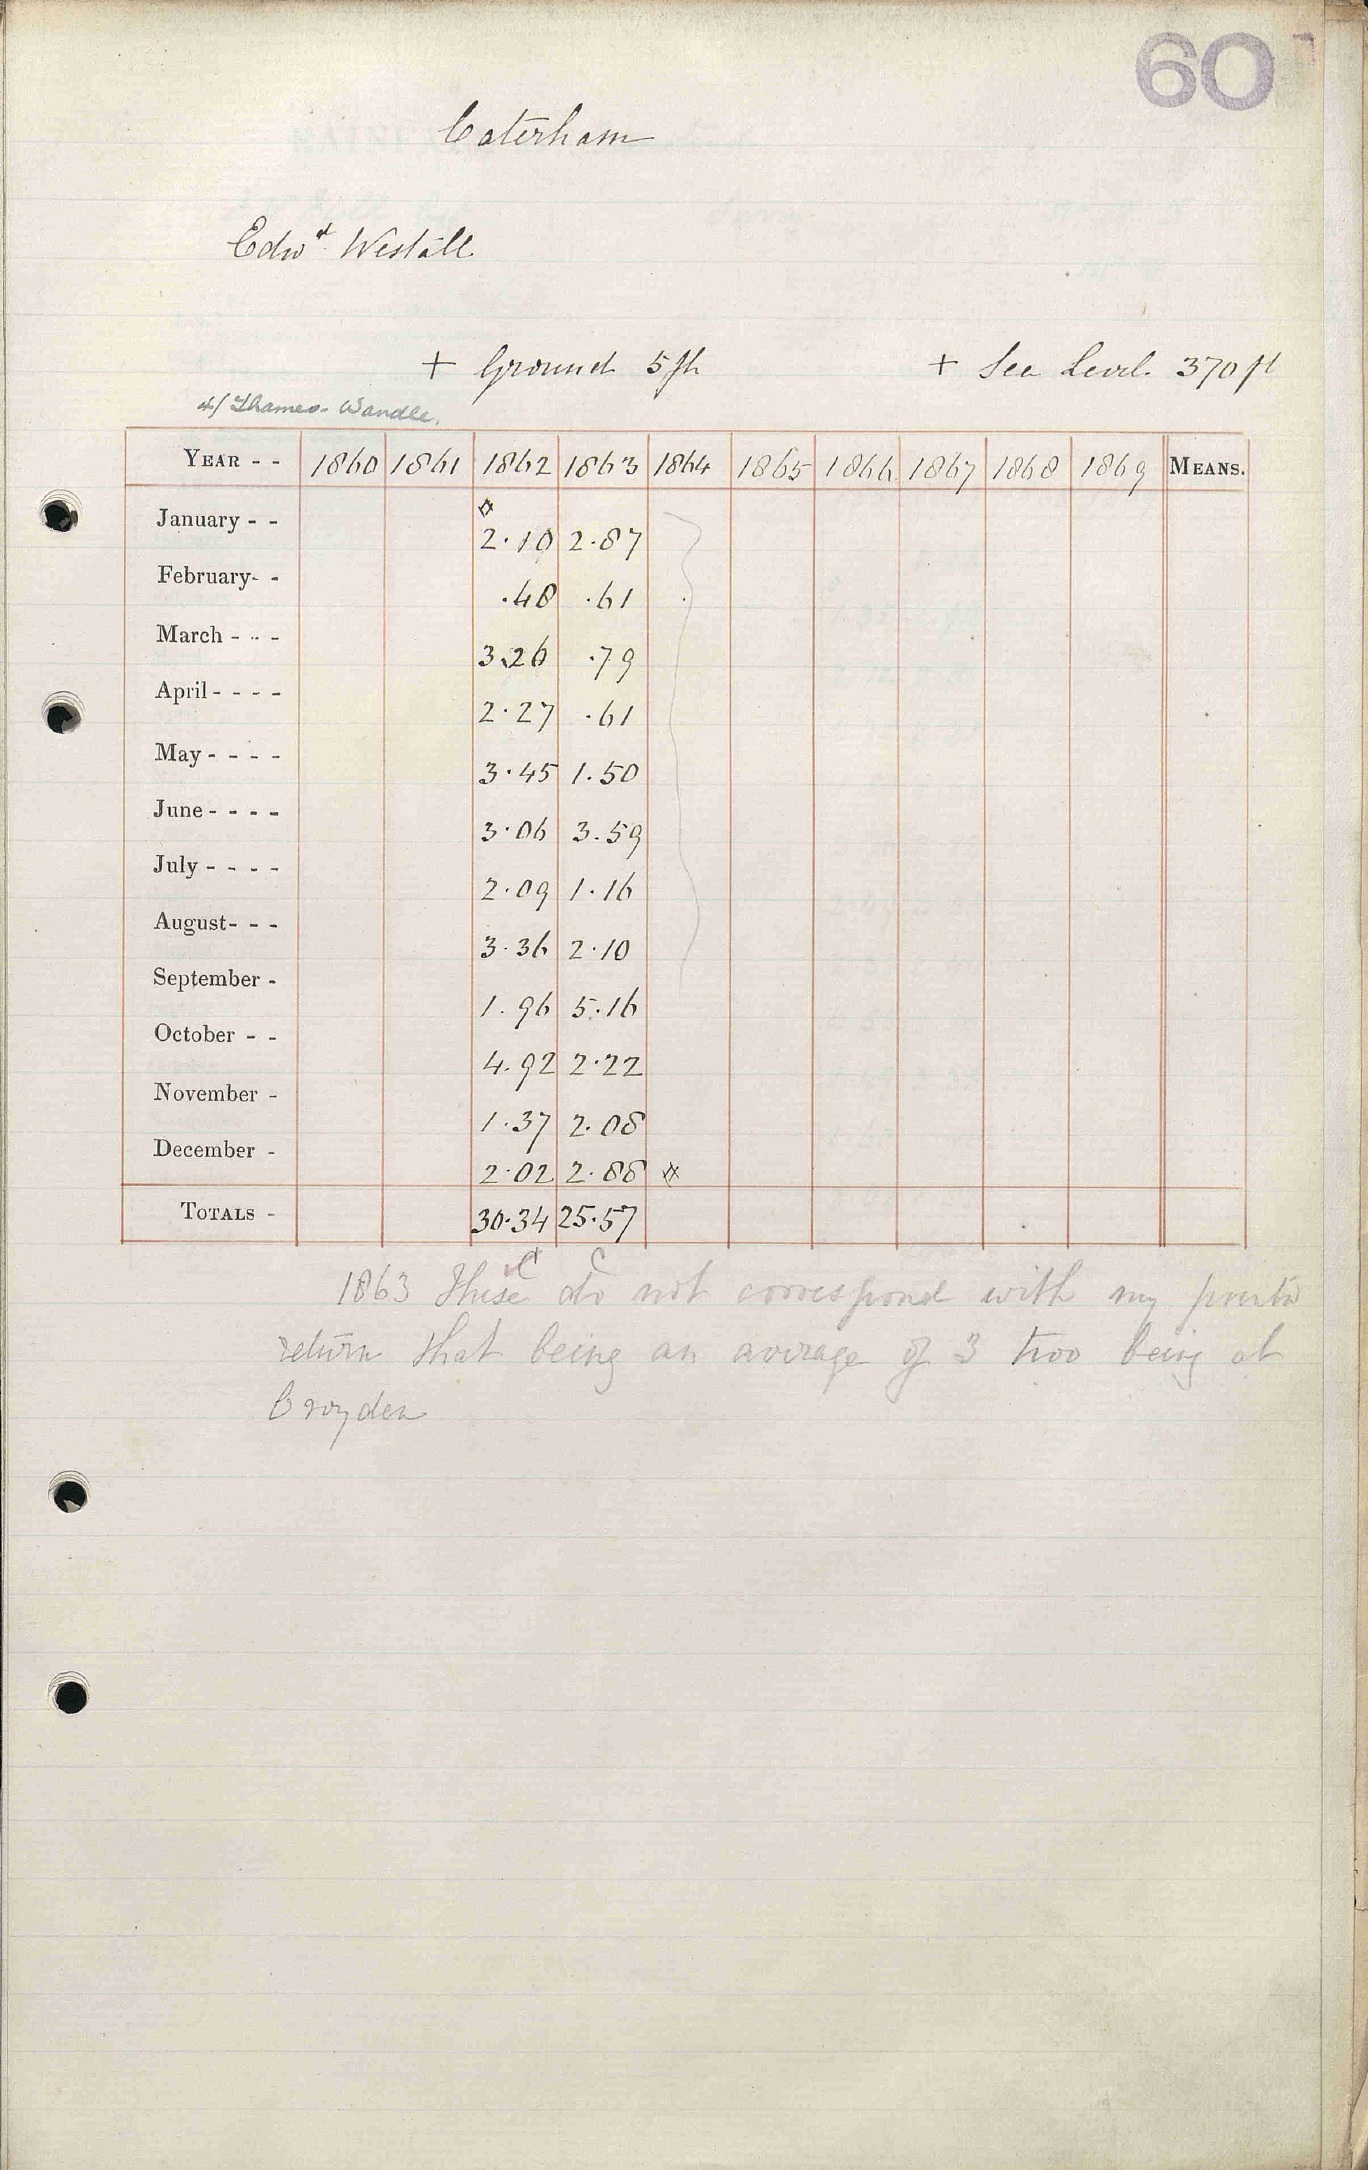 60
Caterham
Edwd Westall
+ Ground 5 ft + Sea Level. 370 ft
4/ Thames - Wandle.
YEAR - - 1860 1861 1862 1863 1864 1865 1866 1867 1868 1869 MEANS.
January - - 2.10 2.87
February - - .48 .61
March - - - 3.26 .79
April - - - - 2.27 .61
May - - - - 3.45 1.50
June - - - - 3.06 3.59
July - - - - 2.09 1.16
August - - - 3.36 2.10
September - 1.96 5.16
October - - 4.92 2.22
November - 1.37 2.08
December - 2.02 2.88
TOTALS - 30.34 25.57
C C
1863 These do not correspond with my
return that being an average of 3 two being at
Croydon